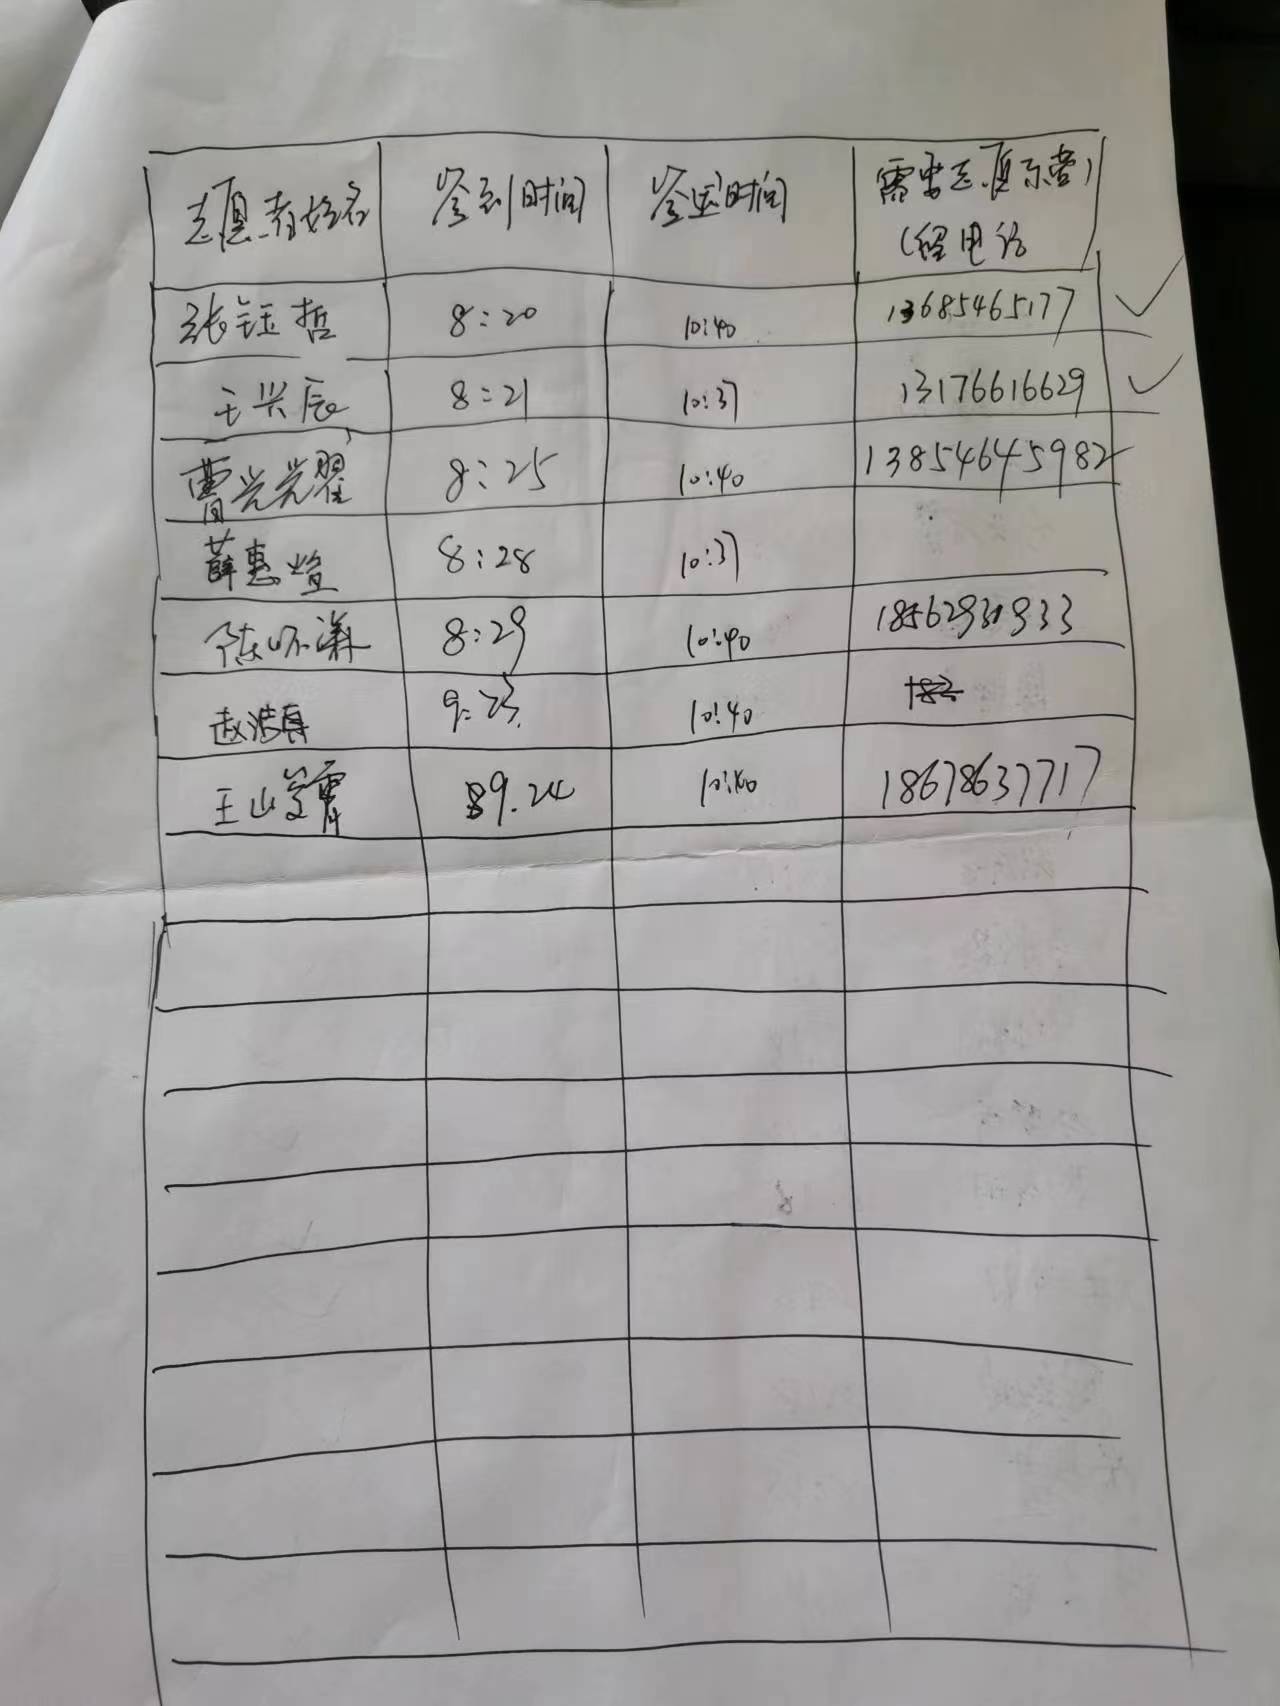 志愿者姓名 签到时间 签退时间 需要志愿示意)
(留电话
张钰哲 8:20 10:40 13685465177
王兴辰 8:21 10:37 13176616629
曹光耀 8:25 10:40 13854645982
薛惠 8:28 10:37
陈怀潇 8:29 10:40
赵浩再 9:25 10:40
王山 9.24 10:40 18678637717